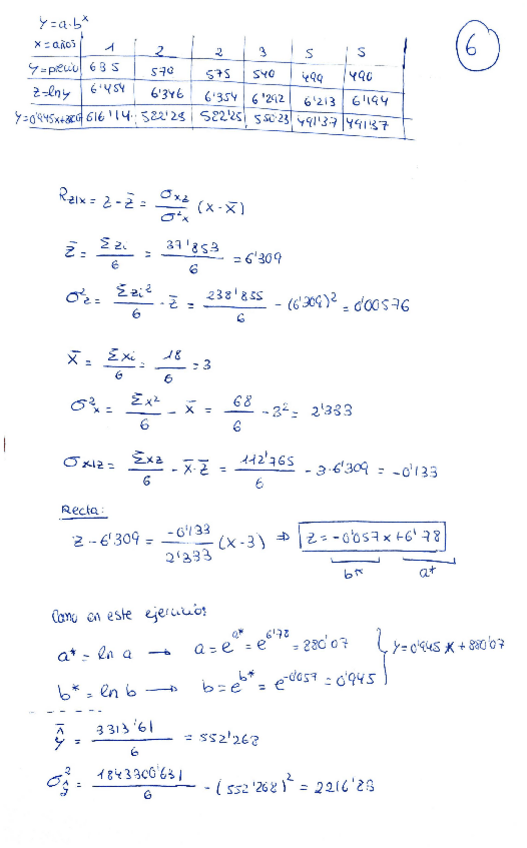 y=a·b^x
6
x=años 1 2 2 3 5 5
y=precio 635 570 575 540 499 490
z=ln y 6'454 6'346 6'354 6'292 6'213 6'194
616'114 522'23 522'23 550'23 491'37 491'37
Rz/x = z - z̄ = σxz/σ²x (x - x̄)
z̄ = Σzi/6 = 37'853/6 = 6'309
σ²z = Σzi²/6 - z̄ = 238'855/6 - (6'309)² = 0'00576
x̄ = Σxi/6 = 18/6 = 3
σ²x = Σx²/6 - x̄ = 68/6 - 3² = 2'333
σx/z = Σxz/6 - x̄·z̄ = 112'765/6 - 3·6'309 = -0'133
Recta:
z - 6'309 = -0'133/2'333 (x-3) ⇒ z = -0'057x + 6'78
b* a*
Como en este ejercicio:
a* = ln a → a = e^a* = e^6'78 = 880'07
y = 0'945x + 880'07
b* = ln b → b = e^b* = e^-0'057 = 0'945
ŷ̄ = 3313'61/6 = 552'268
σ²ŷ = 1843300'631/6 - (552'268)² = 2216'83